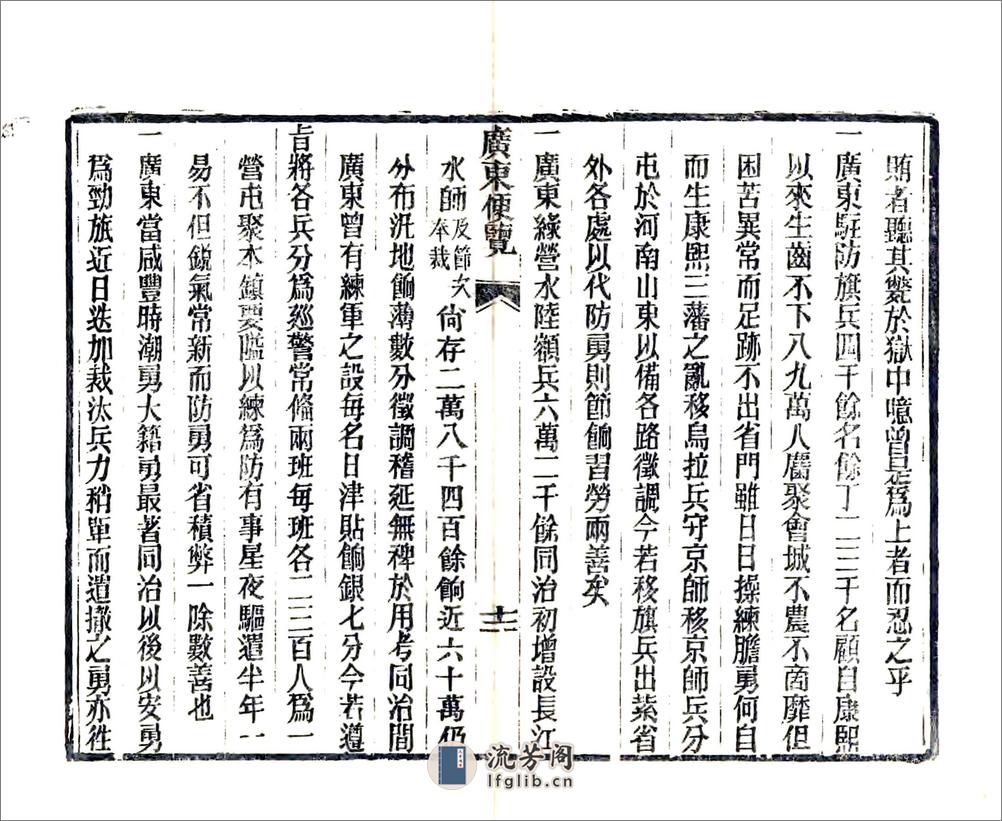 賄者聽其斃於獄中噫曾是為上者而忍之乎
一廣東駐防旗兵四千餘名餘丁一二三千名顧自康熙
以來生齒不下八九萬人麕聚會城不農不商靡但
困苦異常而足跡不出省門雖日日操練膽勇何自
而生康熙三藩之亂移烏拉兵守京師移京師兵分
屯於河南山東以備各路徵調今若移旗兵出紮省
外各處以代防勇則節餉習勞兩善矣
一廣東綠營水陸額兵六萬二千餘同治初增設長江
廣東便覽
十二
水師及節次奉裁尚存二萬八千四百餘餉近六十萬仍
分布汛地餉薄數分徵調稽延無裨於用考同治間
廣東曾有練軍之設每名日津貼餉銀七分今若遵
旨將各兵分為巡警常備兩班每班各二三百人為一
營屯聚本鎮要隘以練為防有事星夜驅遣半年一
易不但銳氣常新而防勇可省積弊一除數善也
一廣東當咸豐時潮勇大籍勇最著同治以後以安勇
為勁旅近日迭加裁汰兵力稍單而遣撤之勇亦往
流芳阁
lfglib.cn